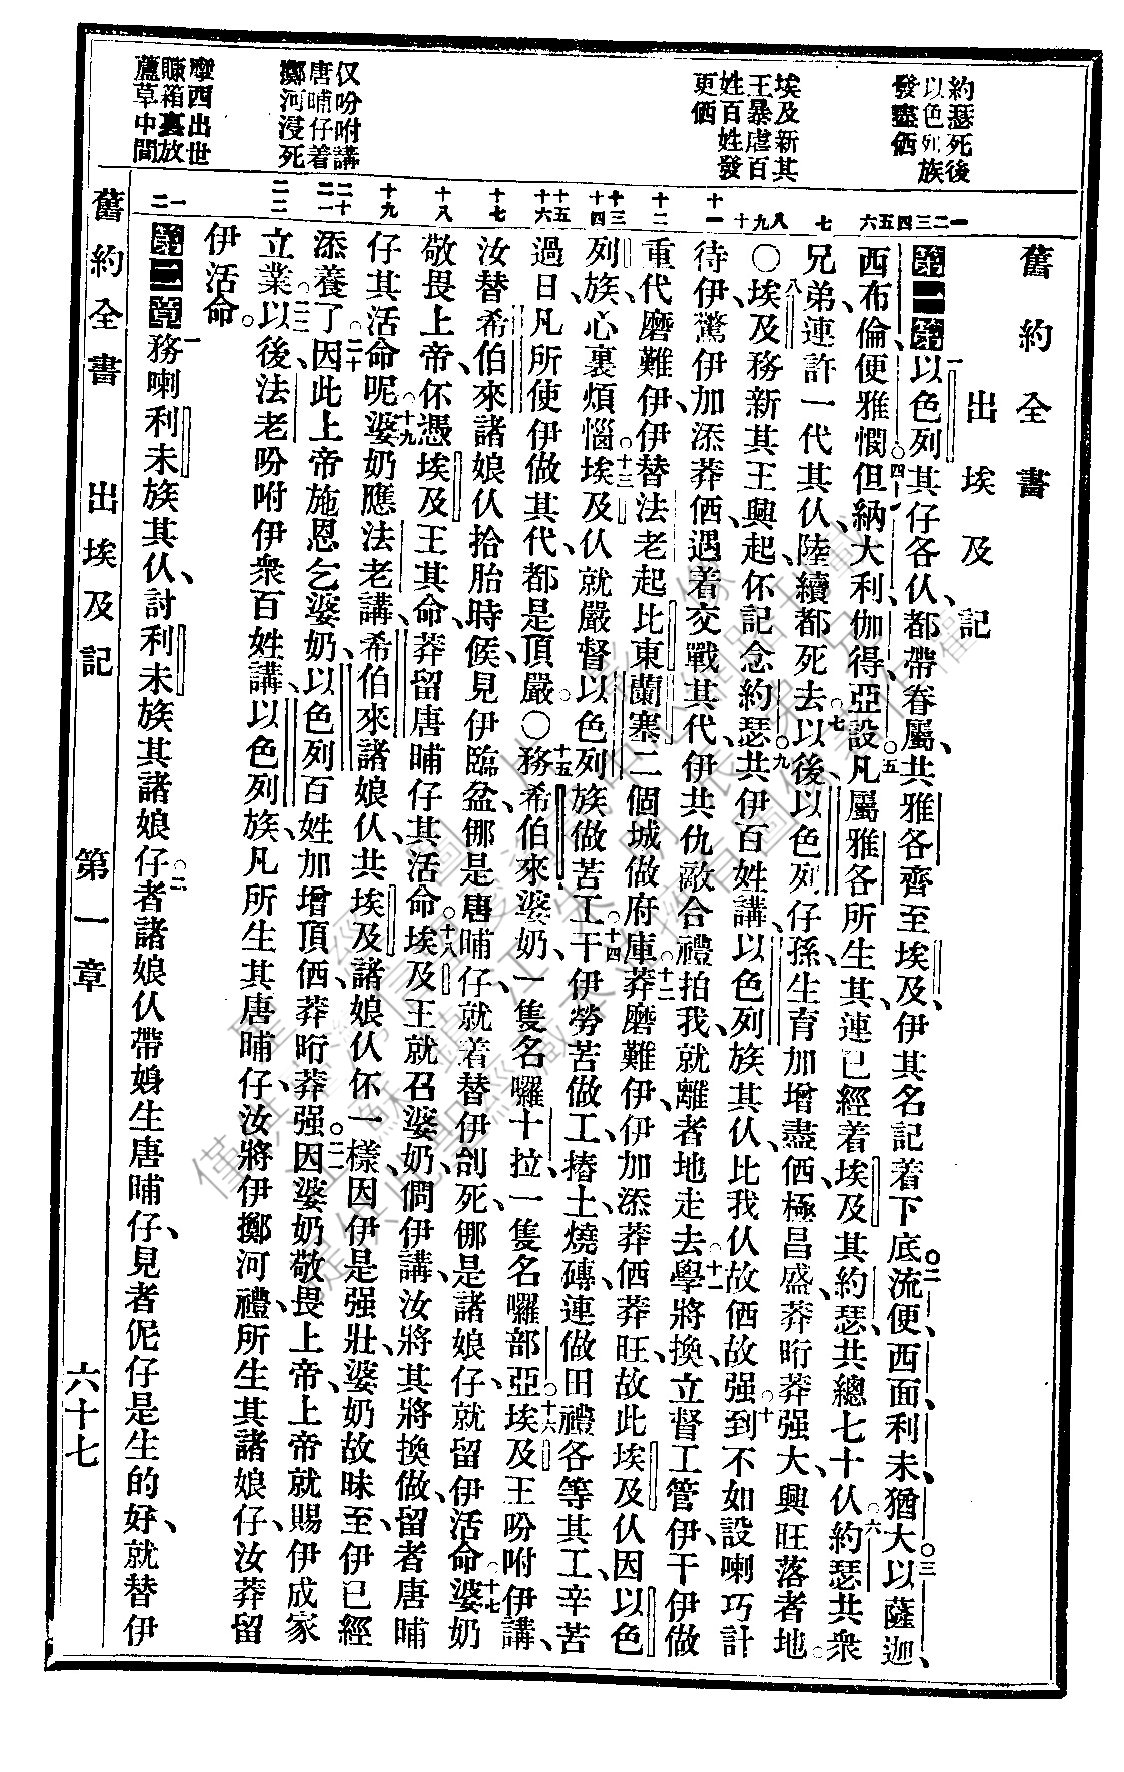 約瑟死後
以色列族
發盡㑚
埃及新其
王暴虐百
姓百姓發
更㑚
仅吩咐講
唐晡仔着
擲河浸死
摩西出世
賺箱裏放
蘆草中間
舊約全書
出埃及記
第一章 一以色列其仔各仈、都帶眷屬、共雅各齊至埃及、伊其名記着下底。二流便、西面、利未、猶大、三以薩迦、
西布倫、便雅憫、四但、納大利、伽得、亞設。五凡屬雅各所生其、連已經着埃及其約瑟、共總七十仈。六約瑟共衆
兄弟、連許一代其仈、陸續都死去。七以後、以色列仔孫、生育加增盡㑚、極昌盛、莽𣈱莽强、大興旺落者地。
○八埃及務新其王興起、伓記念約瑟。九共伊百姓講、以色列族其仈、比我仈故㑚故强。十到不如設喇巧計
待伊、驚伊加添莽㑚、遇着交戰其代、伊共仇敵合禮拍我、就離者地走去。十一學將換、立督工管伊、干伊做
重代磨難伊、伊替法老起比東蘭塞二個城做府庫。十二莽磨難伊、伊加添莽㑚莽旺、故此埃及仈因以色
列族、心裏煩惱。十三埃及仈就嚴督以色列族做苦工。十四干伊勞苦做工、摏土燒磚、連做田禮各等其工、辛苦
過日、凡所使伊做其代、都是頂嚴。○十五務希伯來婆奶、一隻名囉十拉、一隻名囉部亞。十六埃及王吩咐伊講、
汝替希伯來諸娘仈拾胎時候、見伊臨盆、倻是唐晡仔、就着替伊刣死、倻是諸娘仔、就留伊活命。十七婆奶
敬畏上帝、伓憑埃及王其命、莽留唐晡仔其活命。十八埃及王就召婆奶、僩伊講、汝將其將換做、留者唐晡
仔其活命呢。十九婆奶應法老講、希伯來諸娘仈、共埃及諸娘仈伓一樣、因伊是强壯、婆奶故昧至、伊已經
添養了。二十因此上帝施恩乞婆奶、以色列百姓加增頂㑚、莽𣈱莽强。二一因婆奶敬畏上帝、上帝就賜伊成家
立業。二二以後法老吩咐伊衆百姓講、以色列族、凡所生其唐晡仔、汝將伊擲河禮、所生其諸娘仔、汝莽留
伊活命。
第二章 一務喇利未族其仈、討利未族其諸娘仔。二者諸娘仈帶娠生唐晡仔、見者伲仔是生的好、就替伊
舊約全書 出埃及記 第一章 六十七